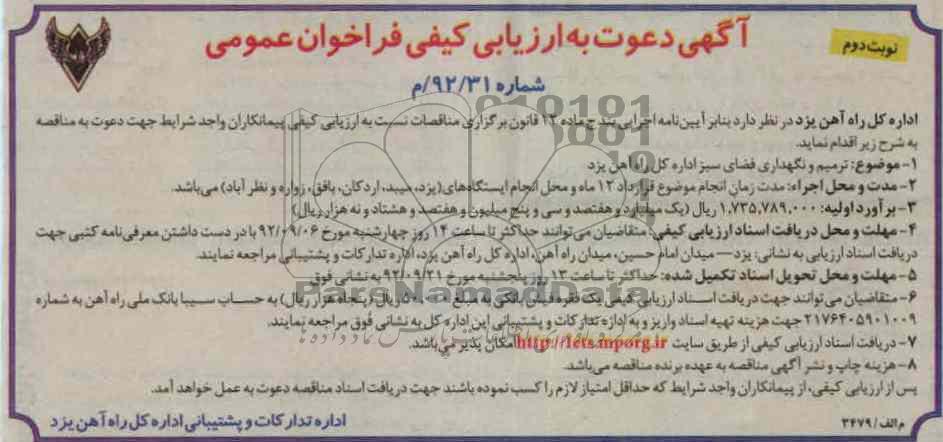 آگهی دعوت به ارزیابی کیفی فراخوان عمومی
نوبت دوم
شماره ۹۲/۳۱/م
اداره کل راه آهن یزد در نظر دارد بنابر آیین نامه اجرایی بند ج ماده ۱۲ قانون برگزاری مناقصات نسبت به ارزیابی کیفی پیمانکاران واجد شرایط جهت دعوت به مناقصه
به شرح زیر اقدام نماید.
۱- موضوع: ترمیم و نگهداری فضای سبز اداره کل راه آهن یزد
۲- مدت و محل اجراء: مدت زمان انجام موضوع قرارداد ۱۲ ماه و محل انجام ایستگاه‌های (یزد، میبد، اردکان، بافق، زواره و نظر آباد) می‌باشد.
۳- برآورد اولیه: ۱,۷۳۵,۷۸۹,۰۰۰ ریال (یک میلیارد و هفتصد و سی و پنج میلیون و هفتصد و هشتاد و نه هزار ریال)
۴- مهلت و محل دریافت اسناد ارزیابی کیفی: متقاضیان می‌توانند حداکثر تا ساعت ۱۴ روز چهارشنبه مورخ ۹۲/۰۹/۰۶ با در دست داشتن معرفی نامه کتبی جهت
دریافت اسناد ارزیابی به نشانی: یزد – میدان امام حسین، میدان راه آهن، اداره کل راه آهن یزد، اداره تدارکات و پشتیبانی مراجعه نمایند.
۵- مهلت و محل تحویل اسناد تکمیل شده: حداکثر تا ساعت ۱۳ روز پنجشنبه مورخ ۹۲/۰۹/۲۱ به نشانی فوق
۶- متقاضیان می توانند جهت دریافت اسناد ارزیابی کیفی یک فقره فیش بانکی به مبلغ ۵۰,۰۰۰ ریال (پنجاه هزار ریال) به حساب سیبا بانک ملی راه آهن به شماره
۲۱۷۶۴۰۵۹۰۱۰۰۹ جهت هزینه تهیه اسناد واریز و به اداره تدارکات و پشتیبانی این اداره کل به نشانی فوق مراجعه نمایند.
۷- دریافت اسناد ارزیابی کیفی از طریق سایت http://iets.mporg.ir امکان پذیر می‌باشد.
۸- هزینه چاپ و نشر آگهی مناقصه به عهده برنده مناقصه می‌باشد.
پس از ارزیابی کیفی، از پیمانکاران واجد شرایط که حداقل امتیاز لازم را کسب نموده باشند جهت دریافت اسناد مناقصه دعوت به عمل خواهد آمد.
م الف/۳۴۷۹
اداره تدارکات و پشتیبانی اداره کل راه آهن یزد
ParsNamadData